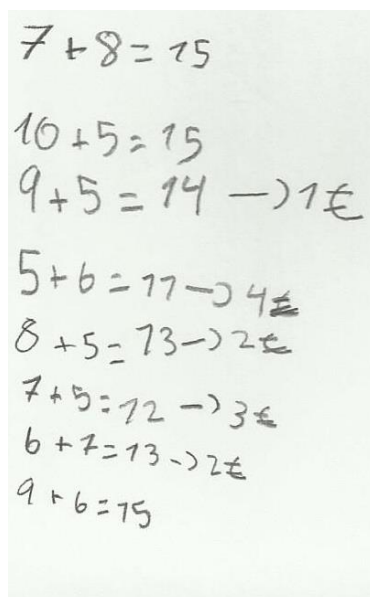 7 + 8 = 15
10 + 5 = 15
9 + 5 = 14 -> 1 €
5 + 6 = 11 -> 4 €
8 + 5 = 13 -> 2 €
7 + 5 = 12 -> 3 €
6 + 7 = 13 -> 2 €
9 + 6 = 15